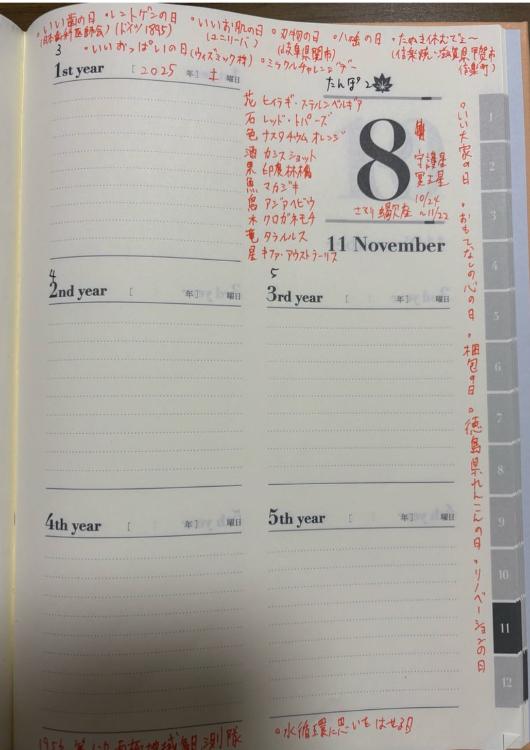 ・いい歯の日 ・レントゲンの日 ・いいお肌の日 ・刃物の日 ・八ヶ岳の日 ・たぬき休むでぇ〜
(日本歯科医師会) (ドイツ1895) (ユニリーバ) (岐阜県関市) (信楽焼・滋賀県甲賀市
信楽町)
3 ・いいおっぱいの日(ウィズミック社) ・ミックルチャレンジデー
1st year [ 2025 年] 土 曜日
たんぽ2
花 ヒイラギ・ステルンベルギア
石 レッド・トパーズ
色 ナスタチウムオレンジ
酒 カシスショット
果 印度林檎
魚 マカジキ
鳥 アジアヘビウ
木 クロガネモチ
竜 タラルルス
星 キファ・アウストラーリス
8
守護星
冥王星
10/24
〜11/22
さそり 蠍座
11 November
4
2nd year [ 年] 曜日
5
3rd year [ 年] 曜日
4th year [ 年] 曜日
5th year [ 年] 曜日
・いい大家の日 ・おもてなしの心の日 ・梱包の日 ・徳島県れんこんの日 ・リノベーションの日
1
2
3
4
5
6
7
8
9
10
11
12
・水循環に思いをはせる日
1956 第1次南極地域観測隊